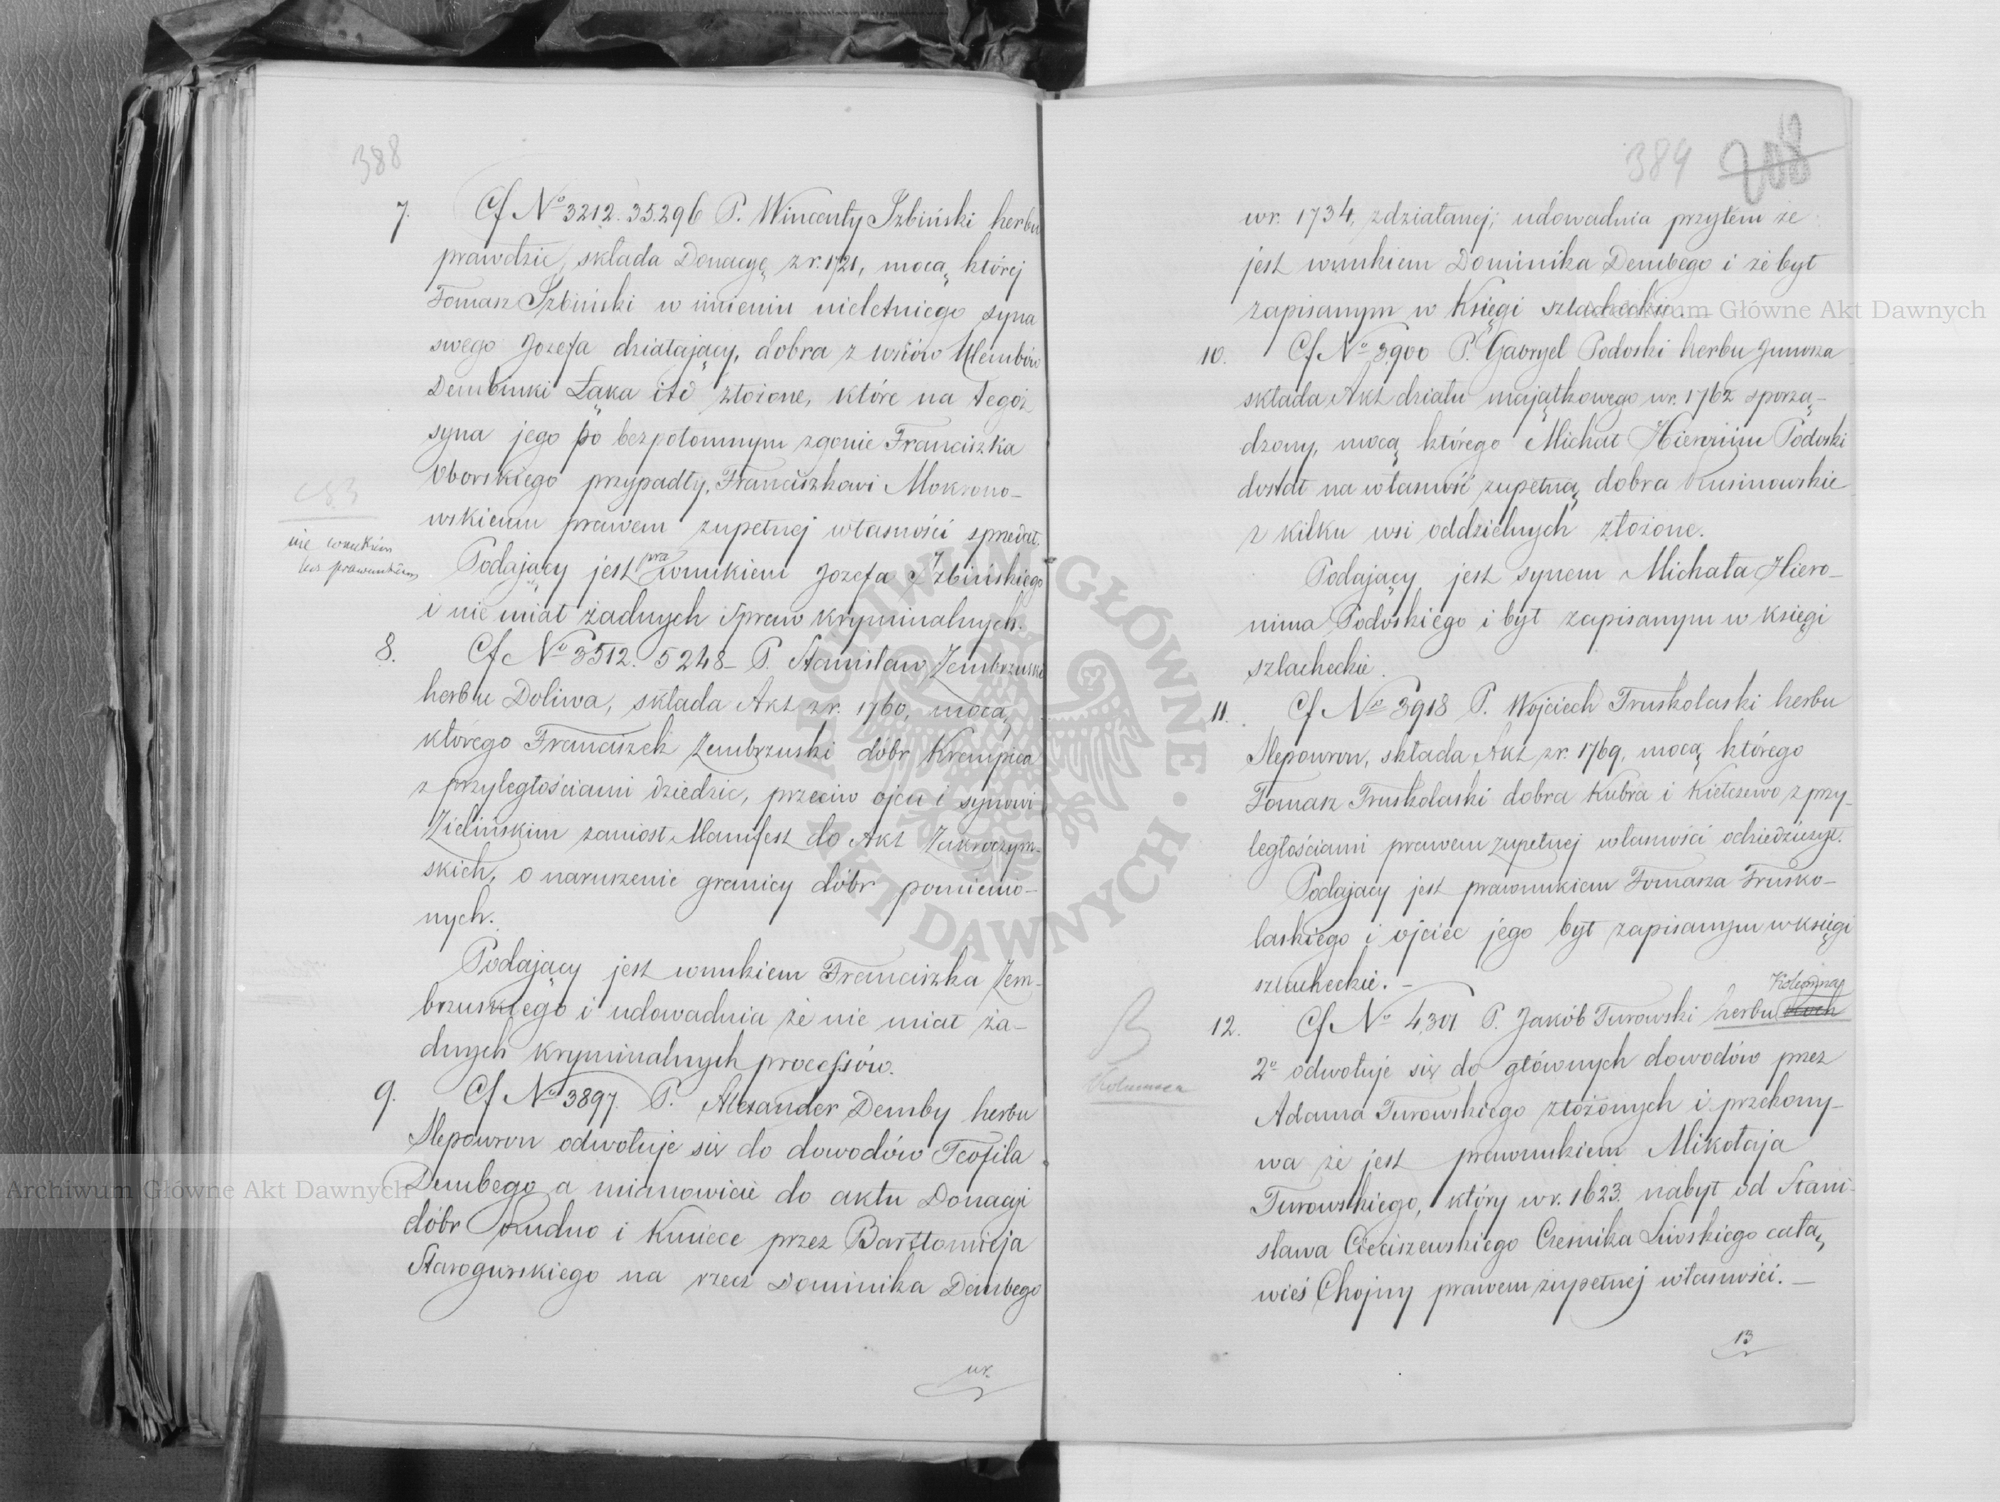 388
7. Cf No 3212. 35.296 P. Wincenty Izbiński herbu
prawdzic, składa Donacyę z r. 1721, mocą której
Tomasz Izbiński w imieniu nieletniego syna
swego Józefa działający, dobra z wsiów
Dembinki Łąka itd złożone, które na tegoż
syna jego po bezpotomnym zgonie Franciszka
Oborskiego przypadły, Franciszkowi Mokrono-
wskiemu prawem zupełnej własności sprzedał.
nie wnukiem
lecz prawnukiem
Podający jest pra wnukiem Józefa Izbińskiego
i nie miał żadnych spraw kryminalnych.
8. Cf No 3512. 5248 - P. Stanisław Zembrzuski
herbu Doliwa, składa Akt z r. 1760, mocą
którego Franciszek Zembrzuski dóbr Krempica
z przyległościami dziedzic, przeciw ojcu i synowi
Zielińskim zaniósł Manifest do Akt Zakroczym-
skich, o naruszenie granicy dóbr pomieno-
nych.
Podający jest wnukiem Franciszka Zem-
brzuskiego i udowadnia że nie miał ża-
dnych kryminalnych procesów.
9. Cf No 3897. P. Alexander Demby herbu
Ślepowron odwołuje się do dowodów Teofila
Dembego a mianowicie do aktu Donacyi
dóbr Rudno i Kmiece przez Bartłomieja
Starogurskiego na rzecz Dominika Dembego
wr.
389 208
wr. 1734, zdziałanej; udowadnia przytem że
jest wnukiem Dominika Dembego i że był
zapisanym w Księgi szlacheckie.
10. Cf No 3900 P. Gabryel Podoski herbu Junosza
składa Akt działu majątkowego w r. 1762 sporzą-
dzony, mocą którego Michał Hieronim Podoski
dostał na własność zupełną dobra
z kilku wsi oddzielnych złożone.
Podający jest synem Michała Hiero-
nima Podoskiego i był zapisanym w księgi
szlacheckie.
11. Cf No 3918 P. Wojciech Truskolaski herbu
Ślepowron, składa Akt z r. 1769, mocą którego
Tomasz Truskolaski dobra Kubra i Kiełczewo z przy-
ległościami prawem zupełnej własności odziedziczył.
Podający jest prawnukiem Tomasza Trusko-
laskiego i ojciec jego był zapisanym w księgi
szlacheckie. -
Kolumna
12. Cf No 4,301 P. Jakób Turowski herbu
2o odwołuje się do głównych dowodów przez
Adama Turowskiego złożonych i przekony-
wa że jest prawnukiem Mikołaja
Turowskiego, który w r. 1623. nabył od Stani-
sława Cieciszewskiego Cześnika Liwskiego całą
wieś Chojny prawem zupełnej własności. -
13
Archiwum Główne Akt Dawnych
Archiwum Główne Akt Dawnych
ARCHIWUM GŁÓWNE AKT DAWNYCH